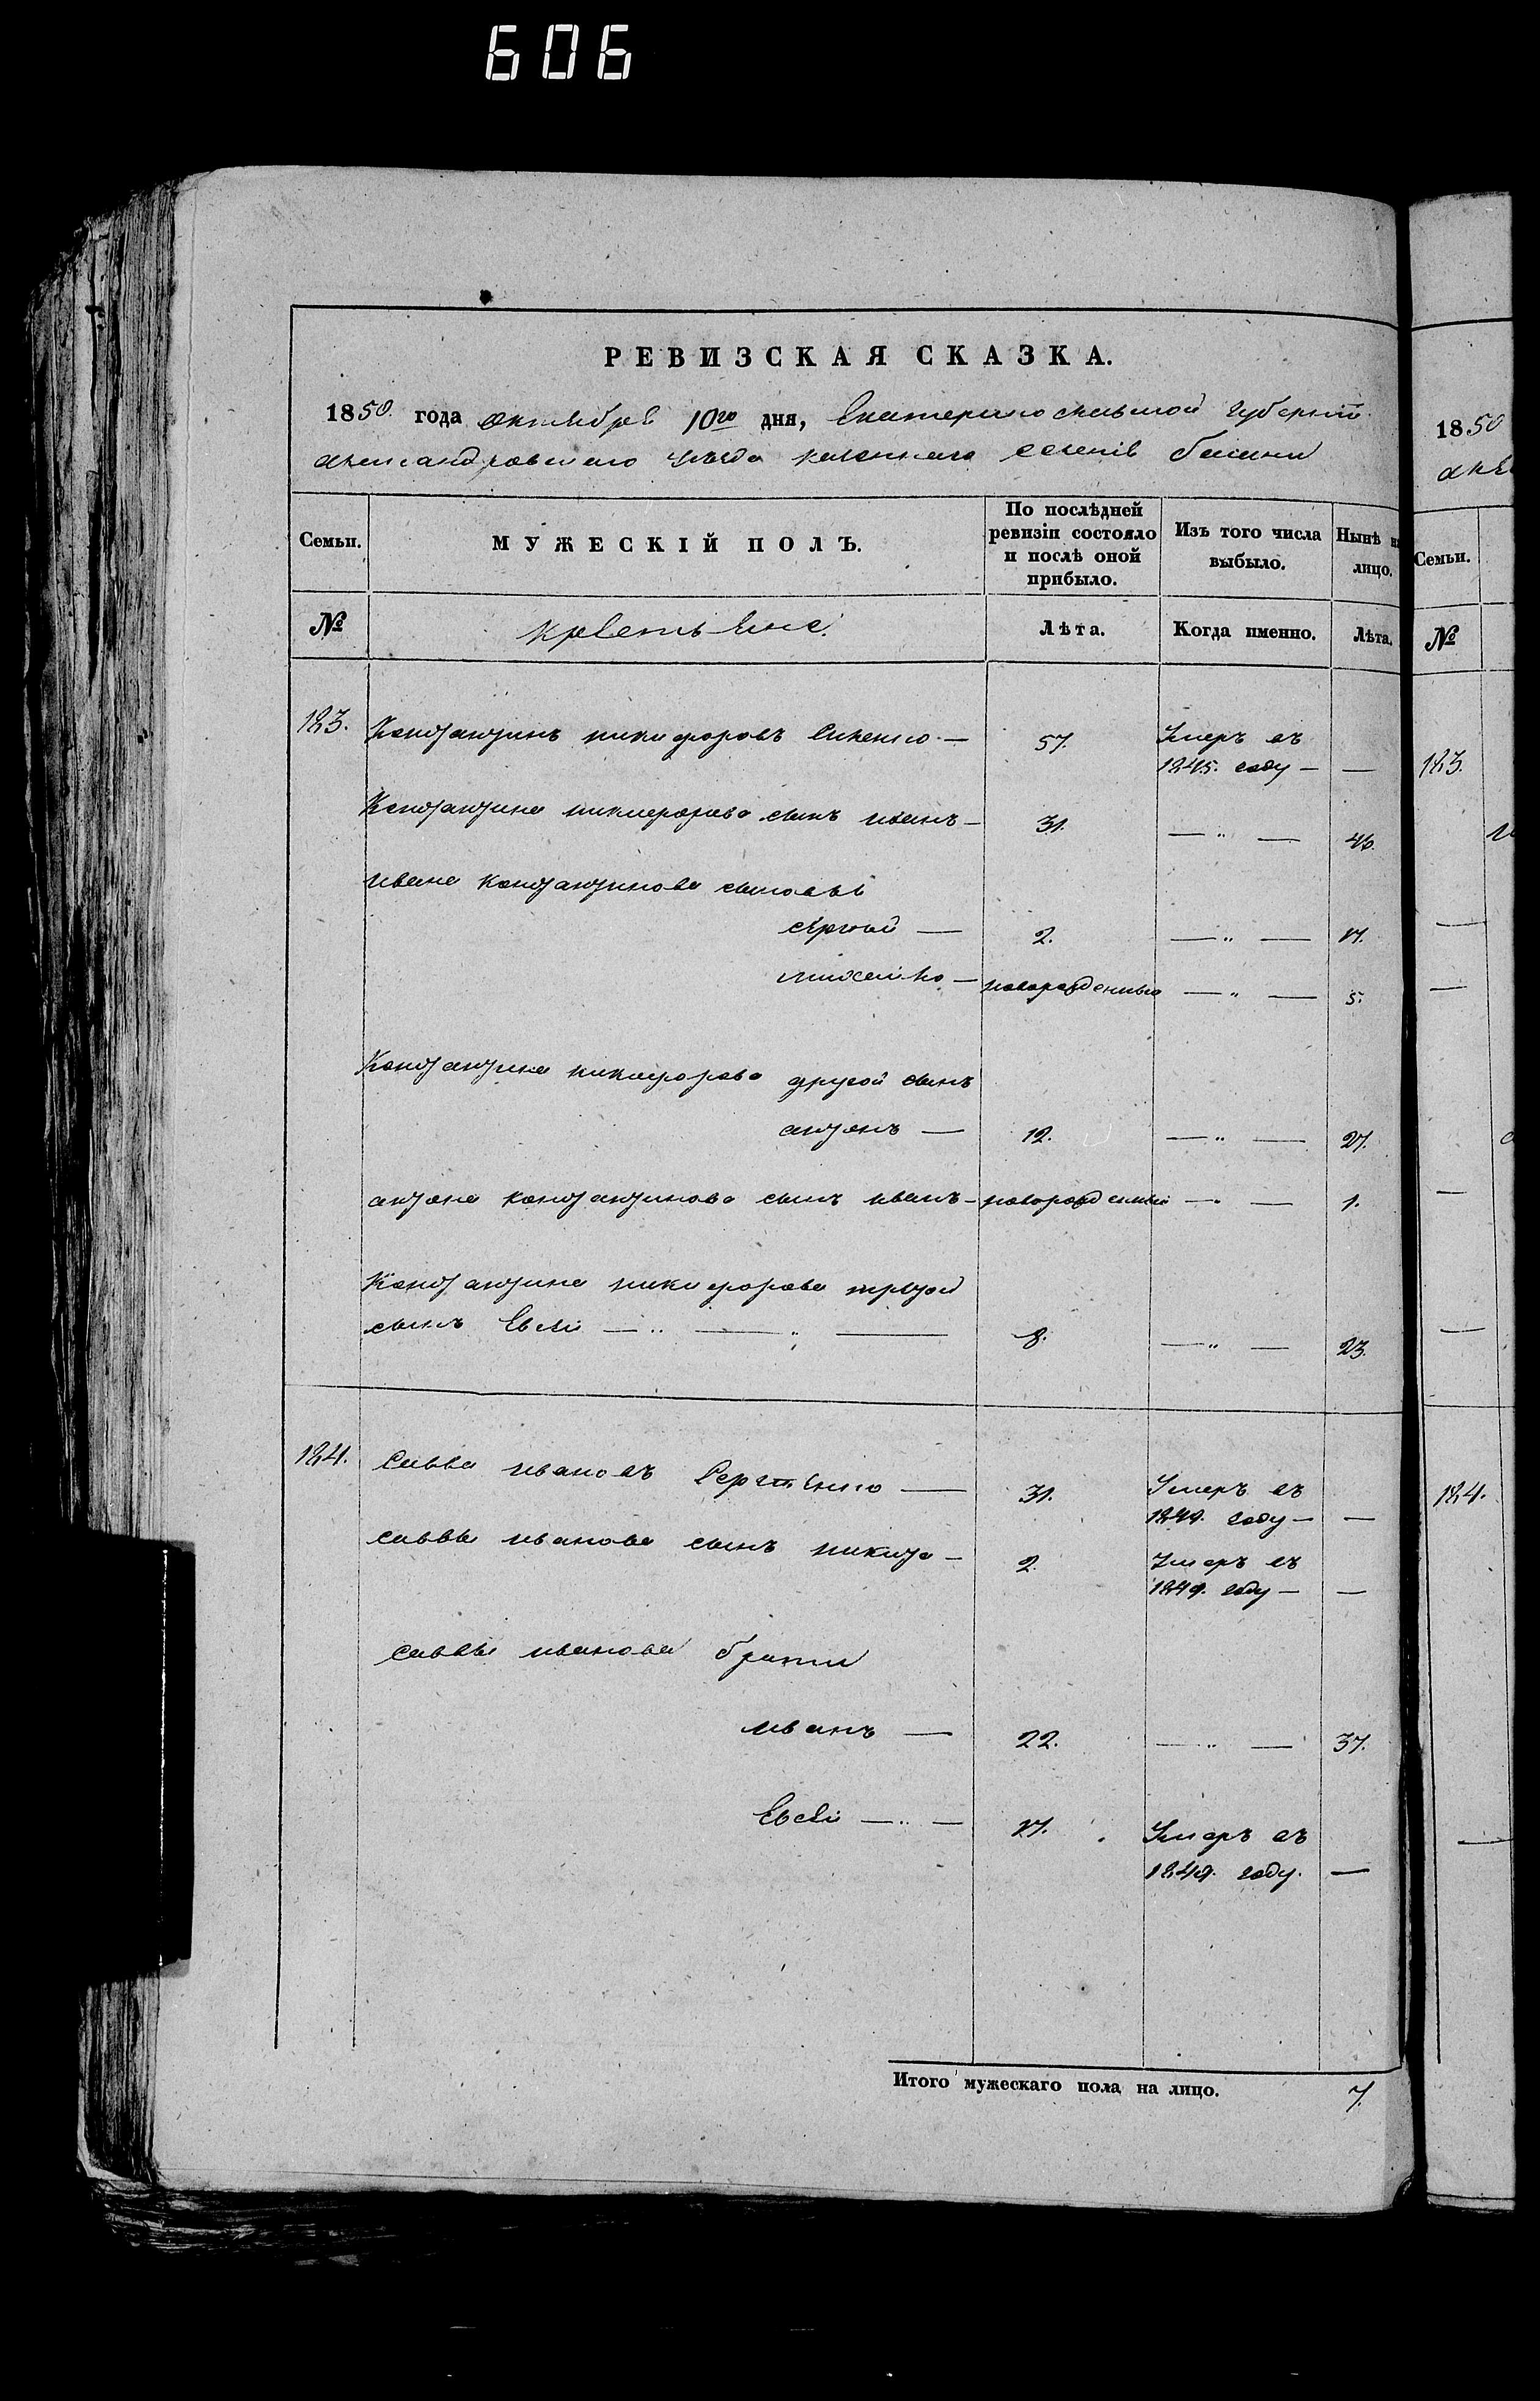 606
РЕВИЗСКАЯ СКАЗКА.
1850. года октября 10го дня, Екатеринославской губернии
александровскаго уѣзда казеннаго селения
Семьи. МУЖЕСКІЙ ПОЛЪ. По послѣдней ревизіи состояло и послѣ оной прибыло. Изъ того числа выбыло. Нынѣ на лицо.
№ крестьяне. Лѣта. Когда именно. Лѣта.
183. Константинъ никифоровъ — 57. Умеръ въ
1845. году — —
Константина никифорова сынъ иванъ — 31. — „ — 46.
ивана константинова сыновья
сергей — 2. — „ — 17.
михайло — новорожденный — „ — 5.
Константина никифорова другой сынъ
антонъ — 12. — „ — 27.
антона константинова сынъ иванъ — новорожденный — „ — 1.
Константина никифорова третей
сынъ Евсей — „ — „ — 8. — „ — 23.
184. Савва ивановъ — 31. Умеръ въ
1849. году — —
саввы иванова сынъ никита — 2. Умеръ въ
1849. году — —
саввы иванова братья
иванъ — 22. — „ — 37.
Евсей — „ — 17. Умеръ въ
1849. году. —
Итого мужескаго пола на лицо. 7.
1850
Семьи.
№
183.
184.